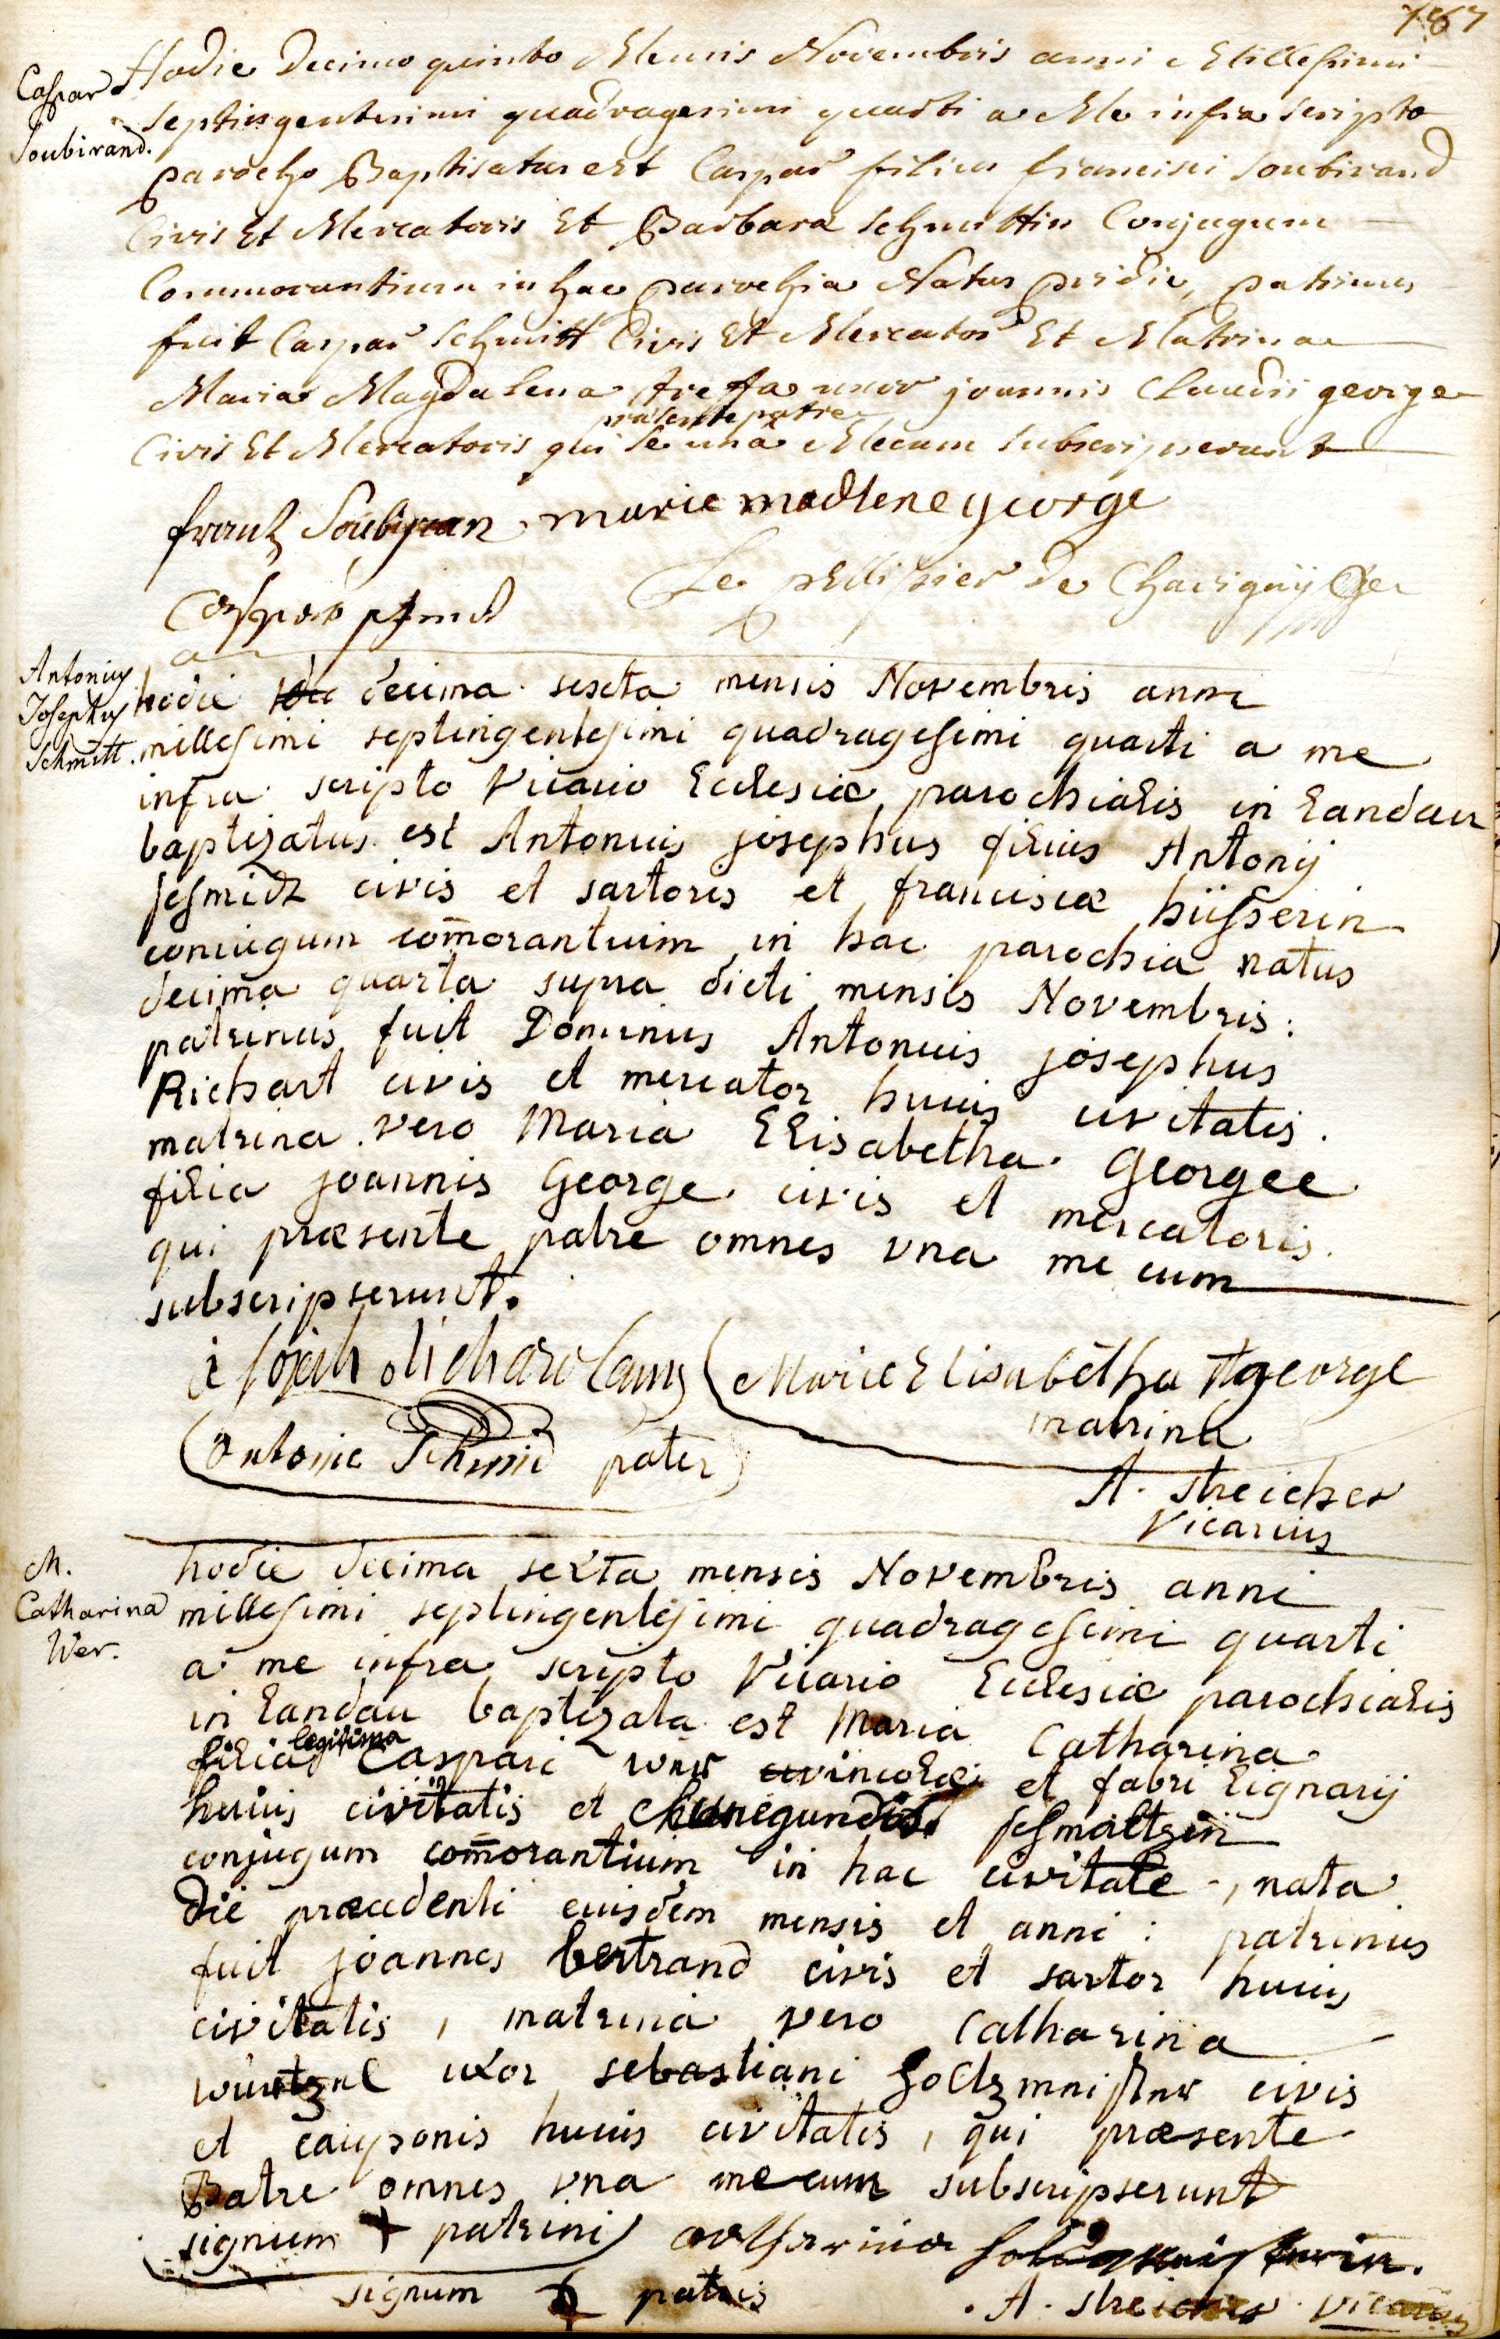 Caspar
Soubirand.
Hodie Decimo quinto Mensis Novembris anni Millesimi
septingentesimi quadragesimi quarti a Me infra scripto
parocho Baptisatus est Caspar filius francisci Soubirand
Civis Et Mercatoris Et Barbara Schmittin Conjugum
Commorantium in hac parochia Natus pridie, patrinus
fuit Caspar Schmitt Civis Et Mercator Et Matrina
Maria Magdalena uxor joannis Claudii george
præsente patre
Civis Et Mercatoris qui se una Mecum subscripserunt
frantz Soubiran marie madlene george
Le pellissier de Chavigny
Antonius
Josephus
Schmitt.
hodie decima sexta mensis Novembris anni
millesimi septingentesimi quadragesimi quarti a me
infra scripto Vicario Ecclesiæ parochialis in Landau
baptizatus est Antonius josephus filius Antonij
schmidt civis et sartoris et franciscæ hüsserin
coniugum com̄orantium in hac parochia natus
decima quarta supra dicti mensis Novembris:
patrinus fuit Dominus Antonius josephus
Richart civis et mercator huius civitatis.
matrina vero Maria Elisabetha Georgee
filia joannis George civis et mercatoris.
qui præsente patre omnes vna me cum
subscripserunt.
Marie Elisabetha george
matrina
Antonie Schmid pater
A. Streicher
Vicarius
M.
Catharina
Wer.
hodie decima sexta mensis Novembris anni
millesimi septingentesimi quadragesimi quarti
a me infra scripto Vicario Ecclesiæ parochialis
in Landau baptizata est Maria Catharina
legitima
filia Caspari wer incolæ et fabri lignarij
huius civitatis et chunegundis schmaltzin
conjugum com̄orantium in hac civitate, nata
die præcedenti eiusdem mensis et anni: patrinus
fuit joannes bertrand civis et sartor huius
civitatis, matrina vero Catharina
wurtzel uxor sebastiani holtzmeister civis
et cauponis huius civitatis, qui præsente
Patre omnes vna mecum subscripserunt
signum + patrini catharina
signum + patris
A. Streicher vicarius